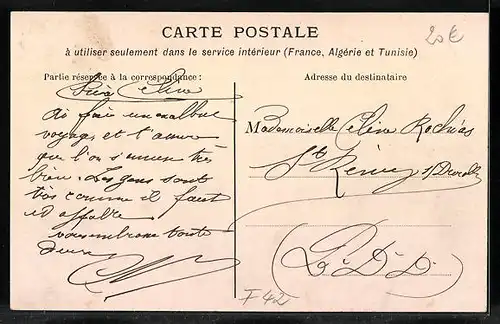 CARTE POSTALE
à utiliser seulement dans le service intérieur (France, Algérie et Tunisie)
Partie réservée à la correspondance :
Adresse du destinataire
20€
Chère Céline
Ai fait un
voyage et t'assure
que l'on s'amuse très
bien. Les gens sont
très comme il faut
et
vous embrasse toute
deux
Mademoiselle Céline Rochias
St Rémy s/Durolle
P. D. D.
F42